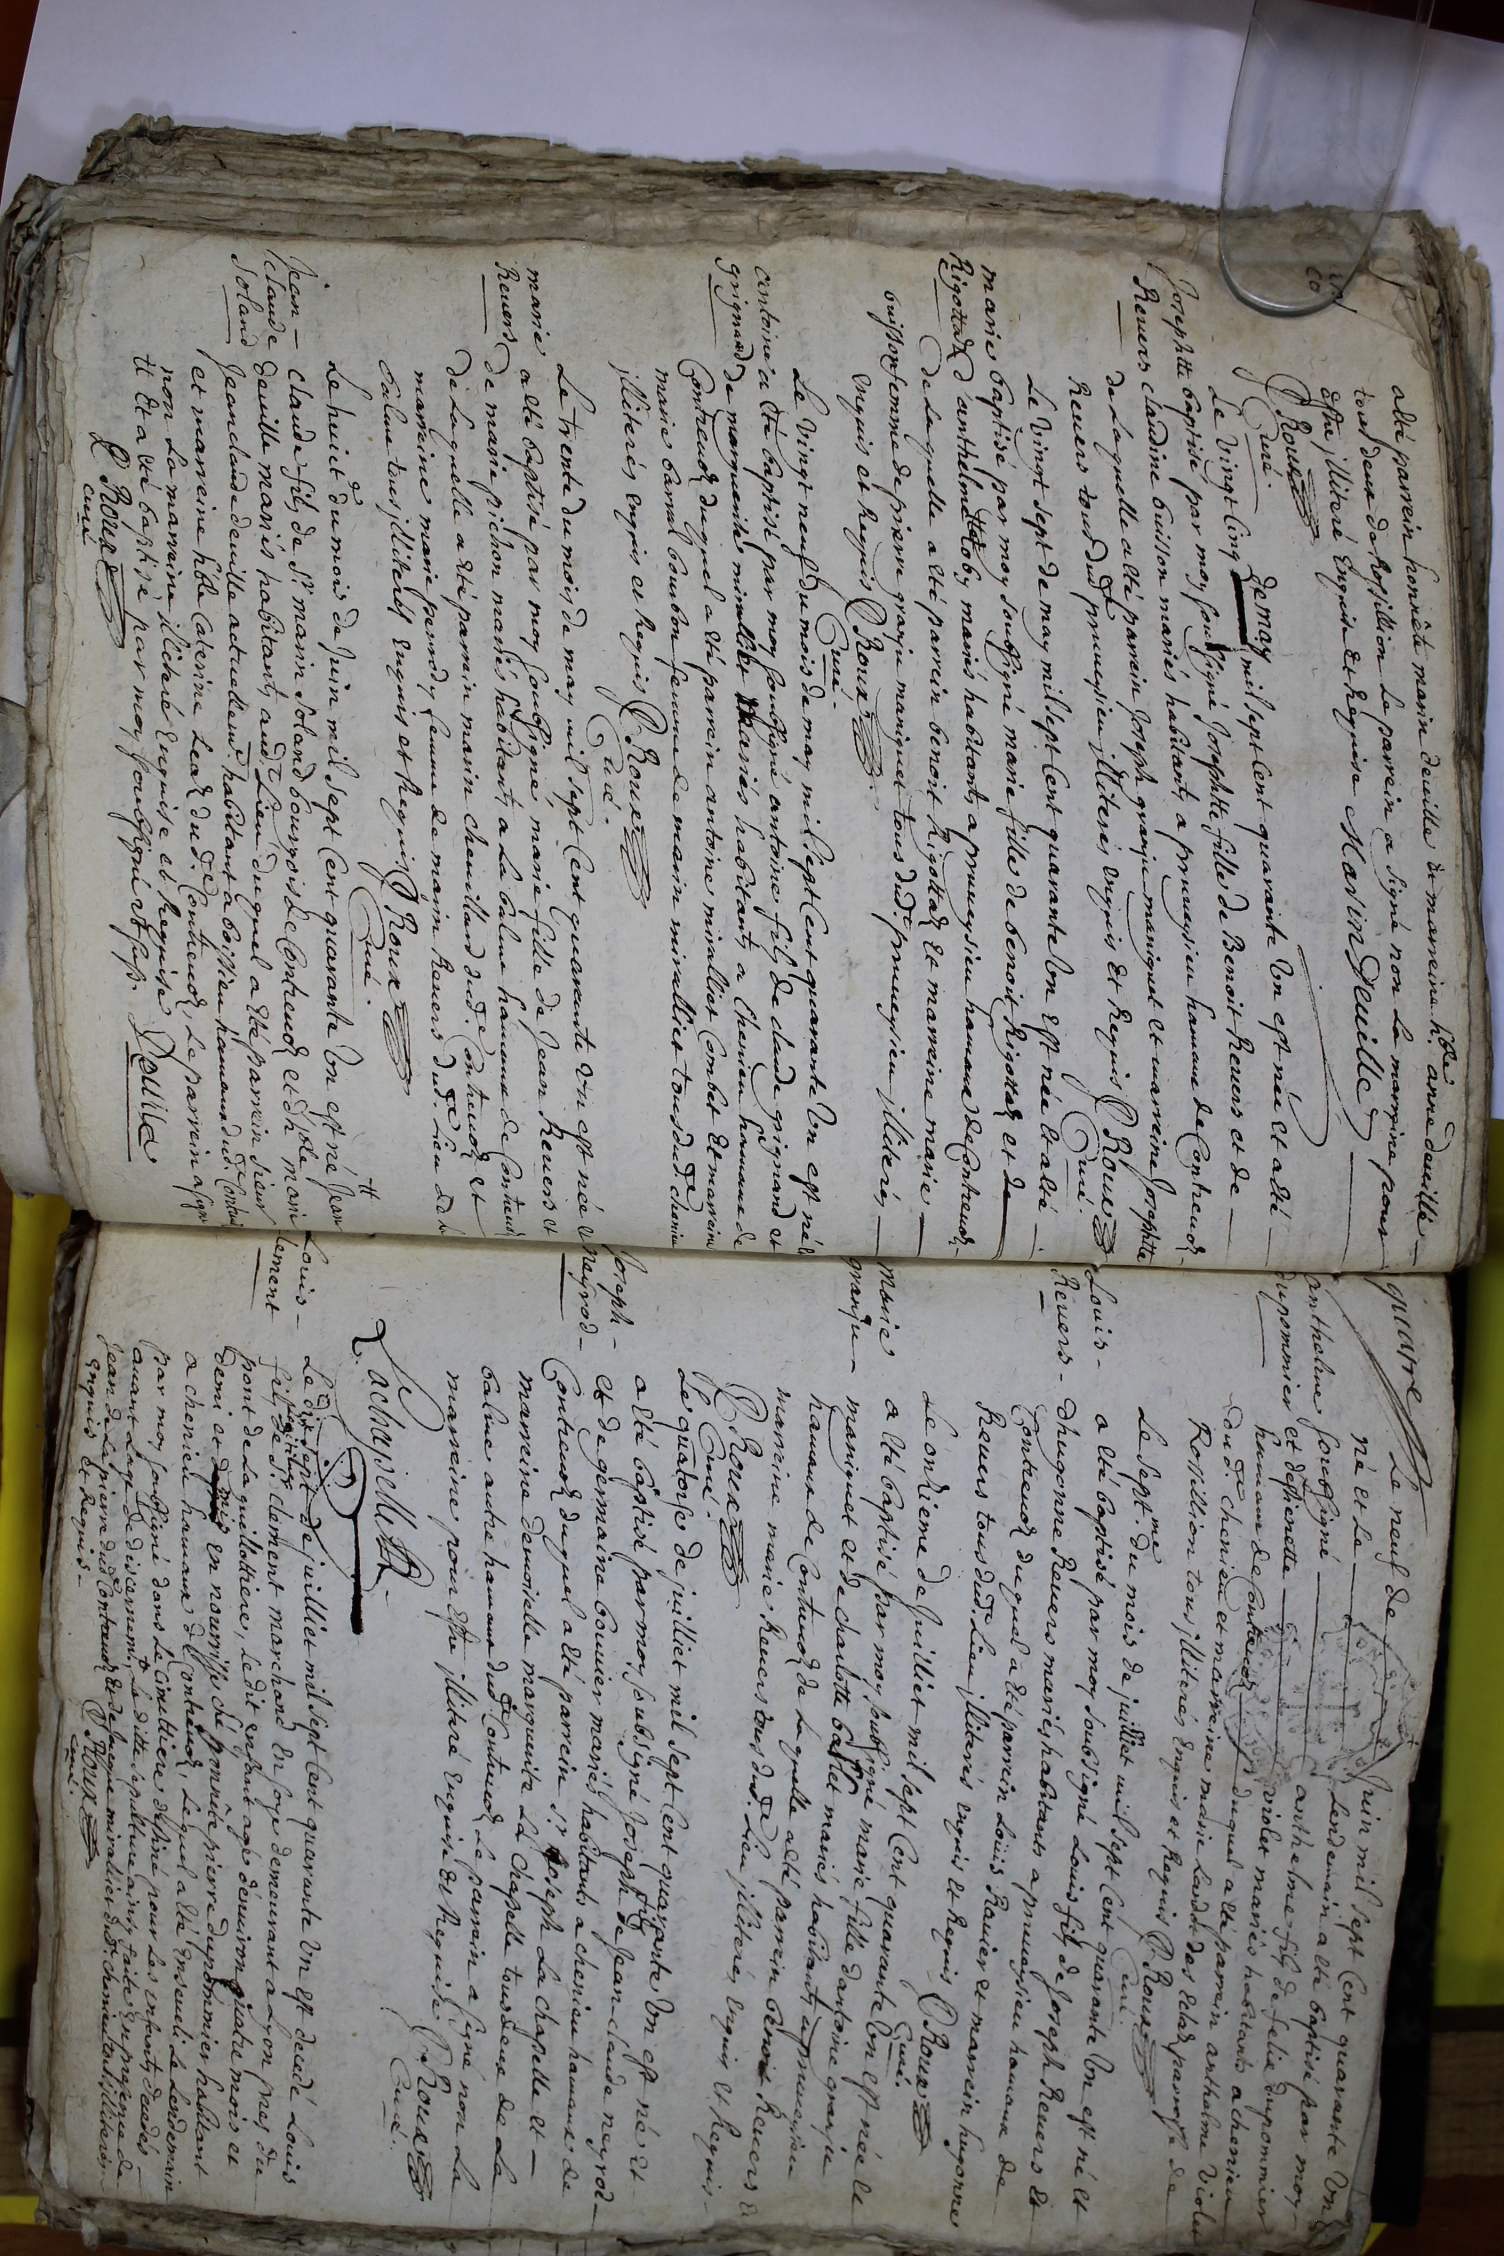 a été parrein honnête marin deuille et marreine h.ble anne deuille
tous deux de Rossillion Le parrein a signé non La marreine pour
estre illiteré Enquise et Requise Marin Deuille
P Roux
Curé.
Josephtte
Reuers
Le vingt cinq de may mil sept cent quarante Un est née et a été
baptisé par moy soubsigné Josephtte fille de Benoit Reuers et de
claudine buisson mariés habitants a prmeysieu hameau de Contreuoz
de Laquelle a été parrein Joseph granju maniguet et marreine Josephtte
Reuers tous dud.t prmeysieu illiterés enquis et Requis P Roux
Curé.
marie
Rigottaz
Le vingt sept de may mil sept cent quarante Un est née et a été
baptisé par moy soubsigné marie fille de benoit Rigottaz et de
d'anthelmette goby mariés habitants a prmeysieu hameau de Contreuoz
de Laquelle a été parrein benoit Rigottaz et marreine marie
buisson femme de pierre granju maniguet tous dud.t prmeysieu illiterés
enquis et Requis P Roux
Curé.
antoine
grignand
Le vingt neuf du mois de may mil sept cent quarante Un est né &
a été baptisé par moy soubsigné antoine fils de claude grignand et
de marguerite miralliet mariés habitants a Chenieu hameau de
Contreuoz duquel a été parrein antoine miralliet Combet et marreine
marie barral bourbon femme de marin miralliet tous dud.t chenieu
illiterés enquis et Requis P Roux
Curé.
marie
Reuers
Le trente du mois de may mil sept cent quarante Un est née &
a été baptisé par moy soubsigné, marie fille de Jean Reuers et
de marie pichon mariés habitants a La balme hameau de Contreuoz
de Laquelle a été parrein marin cheuillard dud.t Contreuoz et
marreine marie femme de marin Reuers dud.t Lieu de la
balme tous illiterés Enquis et Requis P Roux
Curé.
Jean-
claude
Soland
Le huict du mois de Juin mil sept Cent quarante Un est né Jean
claude fils de S.r marin Soland bourgeois de Contreuoz et d'h.ble marie
deuille mariés habitants aud.t Lieu duquel a été parrein sieur
Jeanclaude deuille actuellement habitant a bossieu hameau dud.t Contreuoz
et marreine h.ble Caterine Lea dud.t Contreuoz, Le parrein a signé
non La marreine illiteré Enquise et Requise
et a été baptisé par moy soubsigné Deuille
P Roux
curé
quatre
anthelme
dupommier
Le neuf de Juin mil sept Cent quarante Un est
né et Le Lendemain a été baptisé par moy
soubsigné anthelme fils de felix dupommier
et d'estienette violet mariés habitants a chenieu
hameau de Contreuoz duquel a été parrein anthelme Violet
du d.t chenieu et marreine marie parroisse de
Rossillion tous illiterés Enquis et Requis P Roux
Curé.
Louis
Reuers
Le Sept.me du mois de juilliet mil sept Cent quarante Un est né et
a été baptisé par moy soubsigné Louis fils de Joseph Reuers et
d'hugonne Reuers mariés habitants a prmeysieu hameau de
Contreuoz duquel a été parrein Louis Rauier et marrein hugonne
Reuers tous dud.t Lieu illiterés enquis et Requis P Roux
Curé.
Marie
granju
Le onzieme de Juilliet mil sept Cent quarante Un est née &
a été baptisé par moy soubsigné marie fille d'antoine granju
maniguet et de charlotte ballet mariés habitants a prmeysieu
hameau de Contreuoz de Laquelle a été parrein benoit Reuers &
marreine marie Reuers tous dud.t Lieu illiterés Enquis et Requis
P Roux
Curé.
Joseph
neyrod
Le quatorze de juilliet mil sept Cent quarante Un est né et
a été baptisé par moy soubsigné Joseph fils de Jean claude neyrod
et de germaine bouuier mariés habitants a chenieu hameau de
Contreuoz duquel a été parrein S.r Joseph La chapelle et
marreine demoiselle marguerite La Chapelle tous deux de La
balme autre hameau dud.t Contreuoz Le parrein a signé non La
marreine pour estre illiteré Enquise et Requise P Roux
Curé.
Lachapelle
Louis
Clement
Le dix sept de juilliet mil sept Cent quarante Un est decedé Louis
fils legitime de S.r clement marchand En soye demeurant a Lyon pres du
pont de La guillottiere, Ledit enfant agé d'enuiron quatre mois et
demi et mis en nourrisse ché honnête pierre dupommier habitant
a chenieu hameau de Contreuoz, Lequel a été Enseueli Le Lendemain
par moy soubsigné dans Le Cimettiere destiné pour Les enfants decedés
auant Laage de discernement, La ditte sepulture ainsy faite En presence de
Jean de Lapierre dud.t Contreuoz & de Jaque miralliet dud.t chenieu tous illiterés
Enquis et Requis. P Roux
curé.